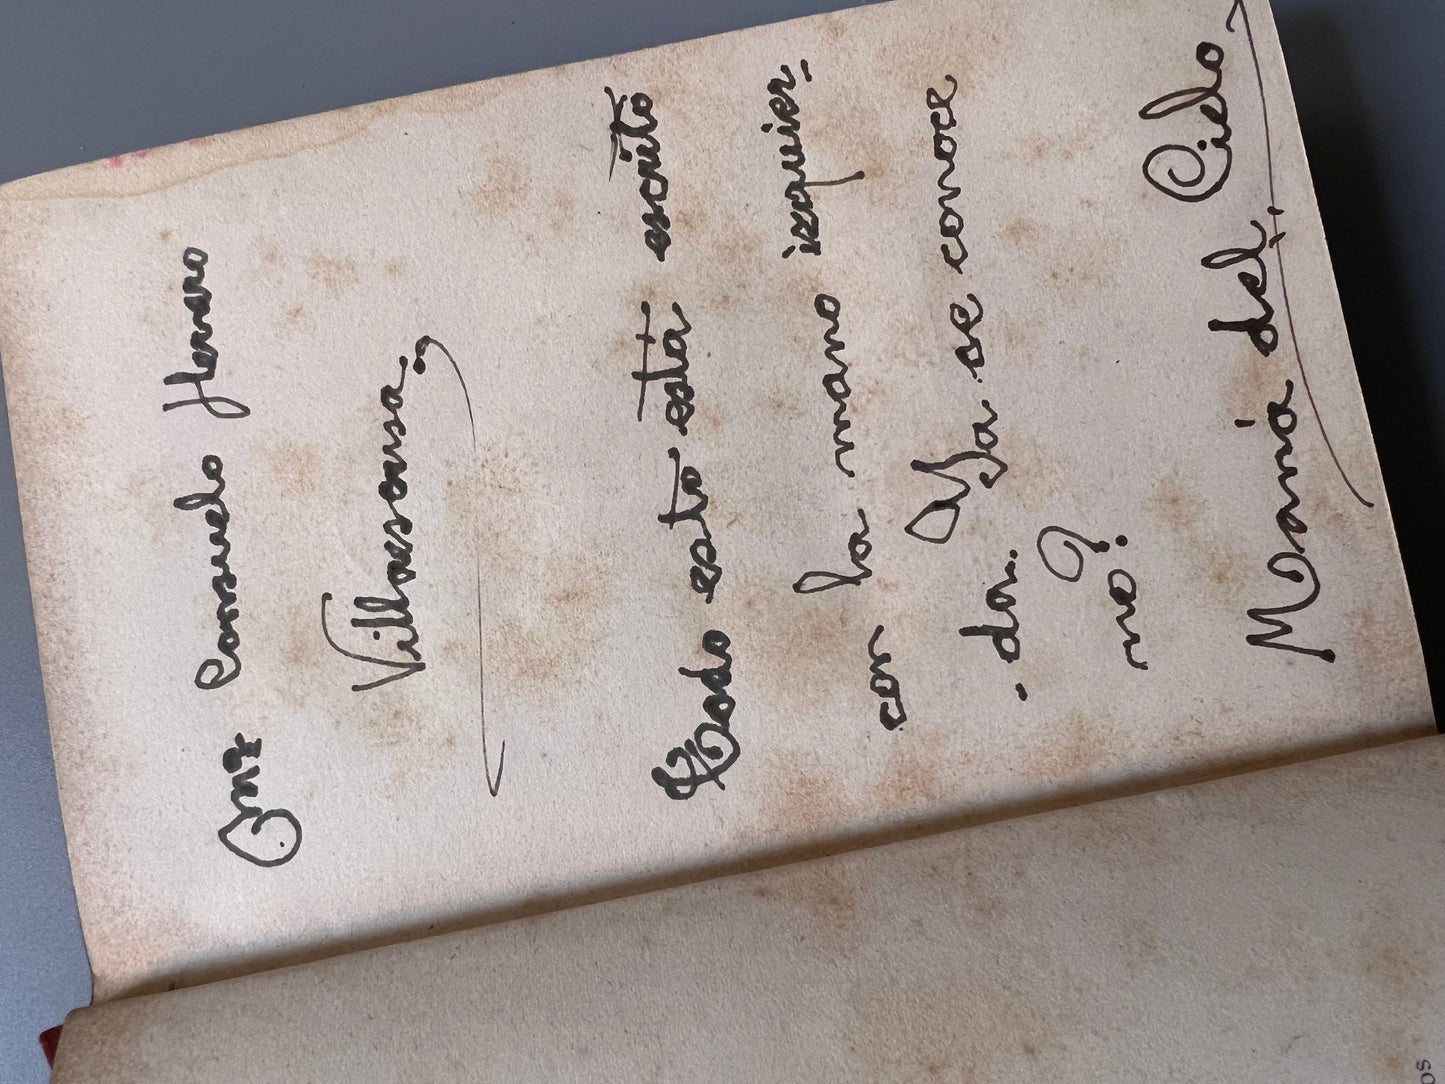 Consuelo Herrero
Villaescusa
Todo esto está escrito
con la mano izquier-
-da. Ya se conoce
no?
María del Cielo